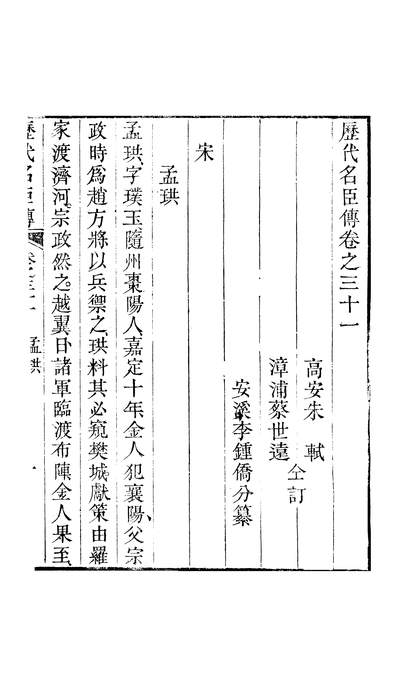 歷代名臣傳卷之三十一
高安朱　軾
漳浦蔡世遠
仝訂
安溪李鍾僑分纂
宋
孟珙
孟珙、字璞玉、隨州棗陽人、嘉定十年、金人犯襄陽、父宗
政時爲趙方將以兵禦之、珙料其必窺樊城、獻策由羅
家渡濟河、宗政然之、越翼日、諸軍臨渡布陣、金人果至、
歷代名臣傳 卷之三十一 孟珙 一